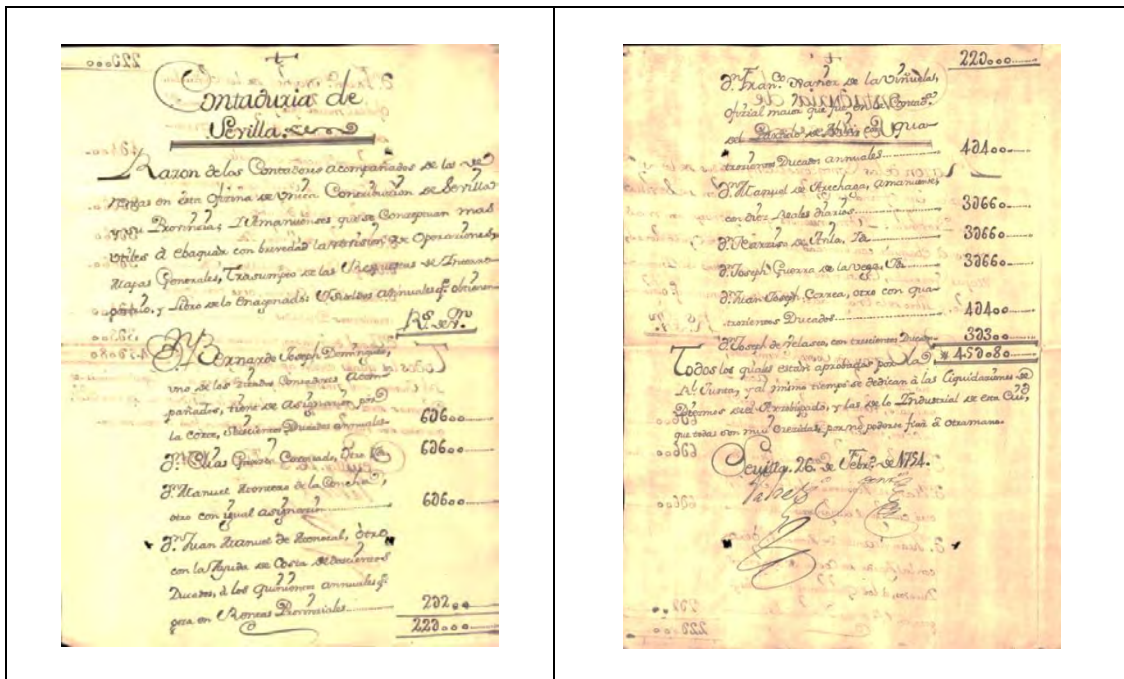 Contaduria de
Sevilla.
Razon de los Contadores acompañados de los de
Rentas en esta Ofizina de Vnica Contribuzion de Sevilla
y su Provincia; y Amanuenses que se Conceptuan mas
vtiles à evaquàr con brevedad la revision de Operaciones,
Mapas Generales, Trasumpto de las de
y Libro de lo Enagenado; Vsueldos annuales qe. obtienen
Rs. de Vn.
Dn. Bernardo Joseph Dominguez,
vno de los zitados Contadores Acom-
pañados, tiene de asignazion por
la Corte, Seiscientos Ducados annuales.
6Ɔ600
Dn. Elias Coronado, Otro Id.
6Ɔ600
Dn. Manuel de la Concha,
otro con igual asignazion
6Ɔ600
Dn. Juan Manuel de otro
con la Ayuda de Costa de Doscientos
Ducados, à los Quinientos annuales qe.
goza en Rentas Provinziales
2Ɔ2
22Ɔ000
22Ɔ000
Dn. Franco. de la Viñuelas,
Ofizial maior que fue en la Contadª.
del Partido de con qua-
trozientos Ducados annuales
4Ɔ400
Dn. Manuel de Arechaga, Amanuense,
con diez Reales diarios
3Ɔ660
Dn. Narziso de Avila, Id.
3Ɔ660
Dn. Joseph Guerra de la Vega, Id.
3Ɔ660
Dn. Juan Joseph Correa, otro con qua-
trozientos Ducados
4Ɔ400
Dn. Joseph de Velasco, con trescientos Ducados
3Ɔ300
45Ɔ080
Todos los quales estàn aprobados por la
Rl. Junta, y al mismo tiempo se dedican à las Liquidaziones de
de este Arzobispado, y las de lo Industrial de esta Ciud.
que todas son mui crezidas, por no poderse fiar à otra mano.
Sevilla, 26. de Febro. de 1754.